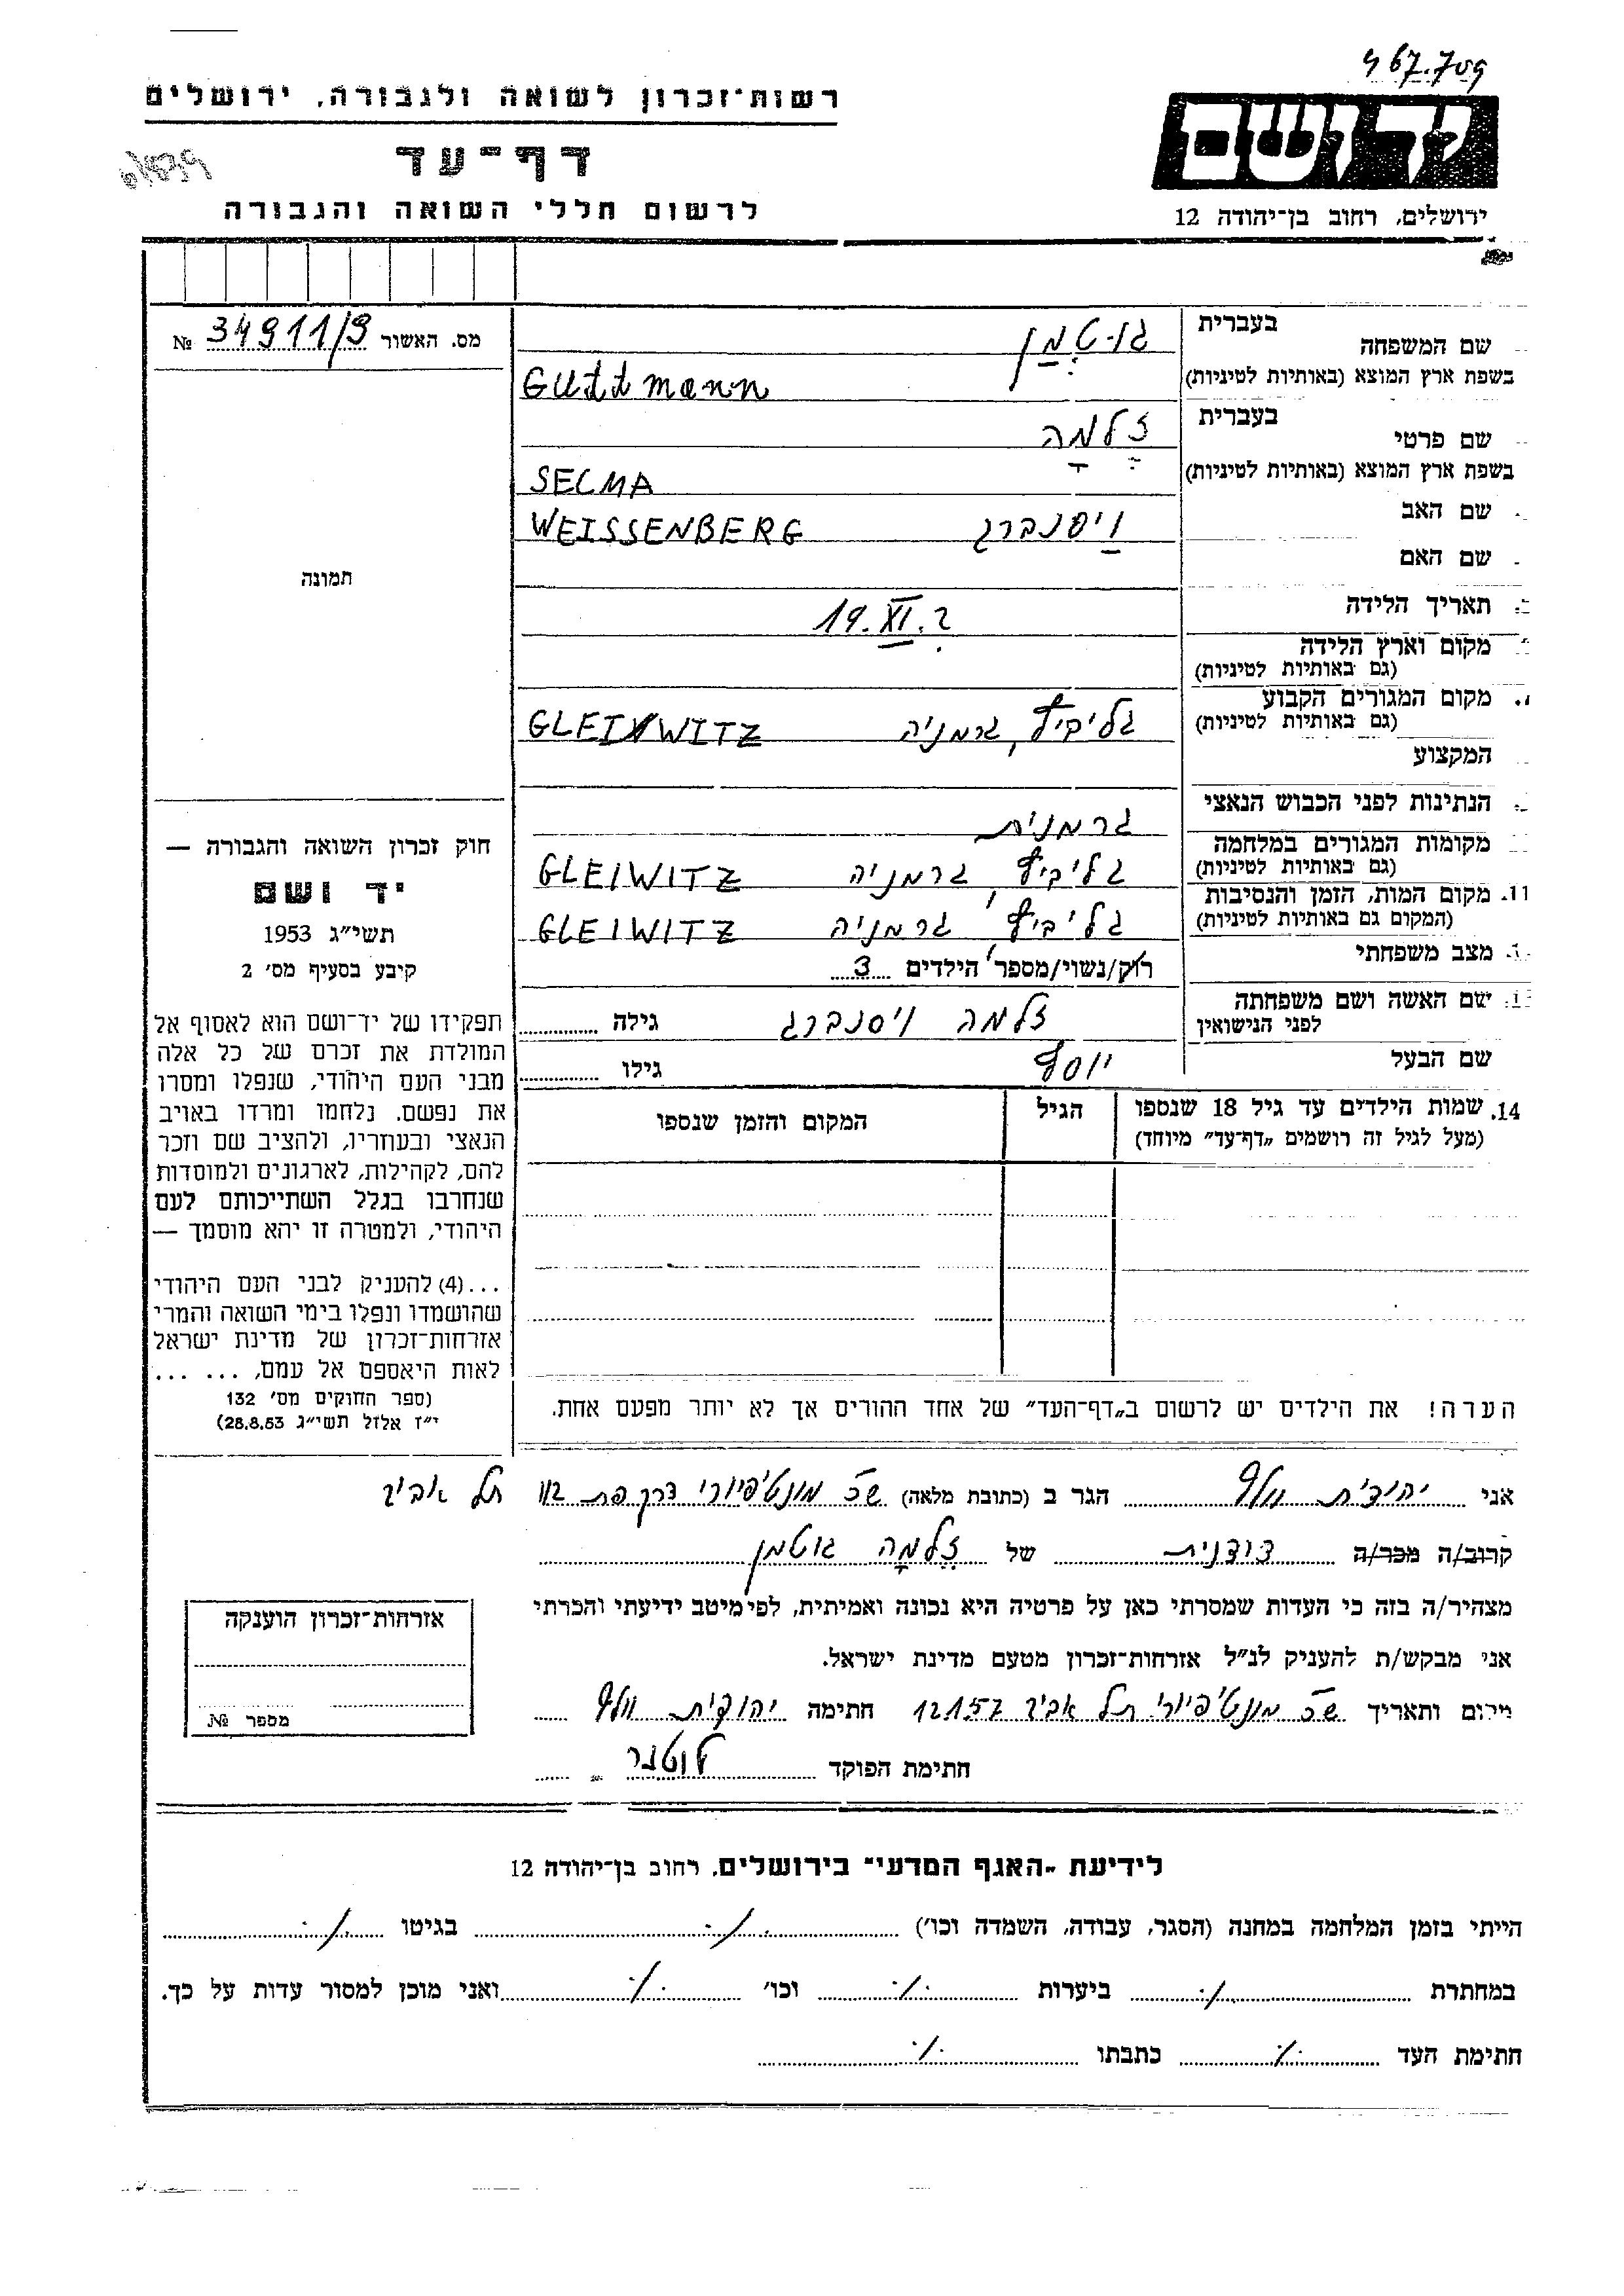 467.709
רשות-זכרון לשואה ולגבורה, ירושלים
דף-עד
לרשום חללי השואה והגבורה
יד ושם
ירושלים, רחוב בן-יהודה 12
מס. האשור 34911/9 №
תמונה
שם המשפחה בעברית גוטמן
בשפת ארץ המוצא (באותיות לטיניות) Guttmann
שם פרטי בעברית זלמה
בשפת ארץ המוצא (באותיות לטיניות) SELMA
שם האב ויסנברג WEISSENBERG
שם האם
תאריך הלידה 19.XI.?
מקום וארץ הלידה
(גם באותיות לטיניות)
מקום המגורים הקבוע גליביץ, גרמניה GLEIWITZ
(גם באותיות לטיניות)
המקצוע
הנתינות לפני הכבוש הנאצי גרמנית
מקומות המגורים במלחמה גליביץ, גרמניה GLEIWITZ
(גם באותיות לטיניות)
11. מקום המות, הזמן והנסיבות גליביץ, גרמניה GLEIWITZ
(המקום גם באותיות לטיניות)
מצב משפחתי רוק/נשוי/מספר הילדים 3
שם האשה ושם משפחתה זלמה ויסנברג גילה
לפני הנישואין
שם הבעל יוסף גילו
14. שמות הילדים עד גיל 18 שנספו הגיל המקום והזמן שנספו
(מעל לגיל זה רושמים „דף-עד" מיוחד)
הערה! את הילדים יש לרשום ב„דף-העד" של אחד ההורים אך לא יותר מפעם אחת.
חוק זכרון השואה והגבורה —
יד ושם
תשי"ג 1953
קיבע בסעיף מס' 2
תפקידו של יד-ושם הוא לאסוף אל
המולדת את זכרם של כל אלה
מבני העם היהודי, שנפלו ומסרו
את נפשם, נלחמו ומרדו באויב
הנאצי ובעוזריו, ולהציב שם וזכר
להם, לקהילות, לארגונים ולמוסדות
שנחרבו בגלל השתייכותם לעם
היהודי, ולמטרה זו יהא מוסמך —
...(4) להעניק לבני העם היהודי
שהושמדו ונפלו בימי השואה והמרי
אזרחות-זכרון של מדינת ישראל
לאות היאספם אל עמם, ... ...
(ספר החוקים מס' 132
י"ז אלול תשי"ג 28.8.53)
אני יהודית וולף הגר ב (כתובת מלאה) שכ' מונטיפיורי דרך פת 112 תל אביב
קרוב/ה מכר/ה דודנית של זלמה גוטמן
מצהיר/ה בזה כי העדות שמסרתי כאן על פרטיה היא נכונה ואמיתית, לפי מיטב ידיעתי והכרתי
אני מבקש/ת להעניק לנ"ל אזרחות-זכרון מטעם מדינת ישראל.
מקום ותאריך שכ' מונטיפיורי תל אביב 12.1.57 חתימה יהודית וולף
חתימת הפוקד
אזרחות-זכרון הוענקה
מספר №
לידיעת „האגף המדעי" בירושלים, רחוב בן-יהודה 12
הייתי בזמן המלחמה במחנה (הסגר, עבודה, השמדה וכו') ./. בגיטו ./.
במחתרת ./. ביערות ./. וכו' ./. ואני מוכן למסור עדות על כך.
חתימת העד ./. כתבתו ./.